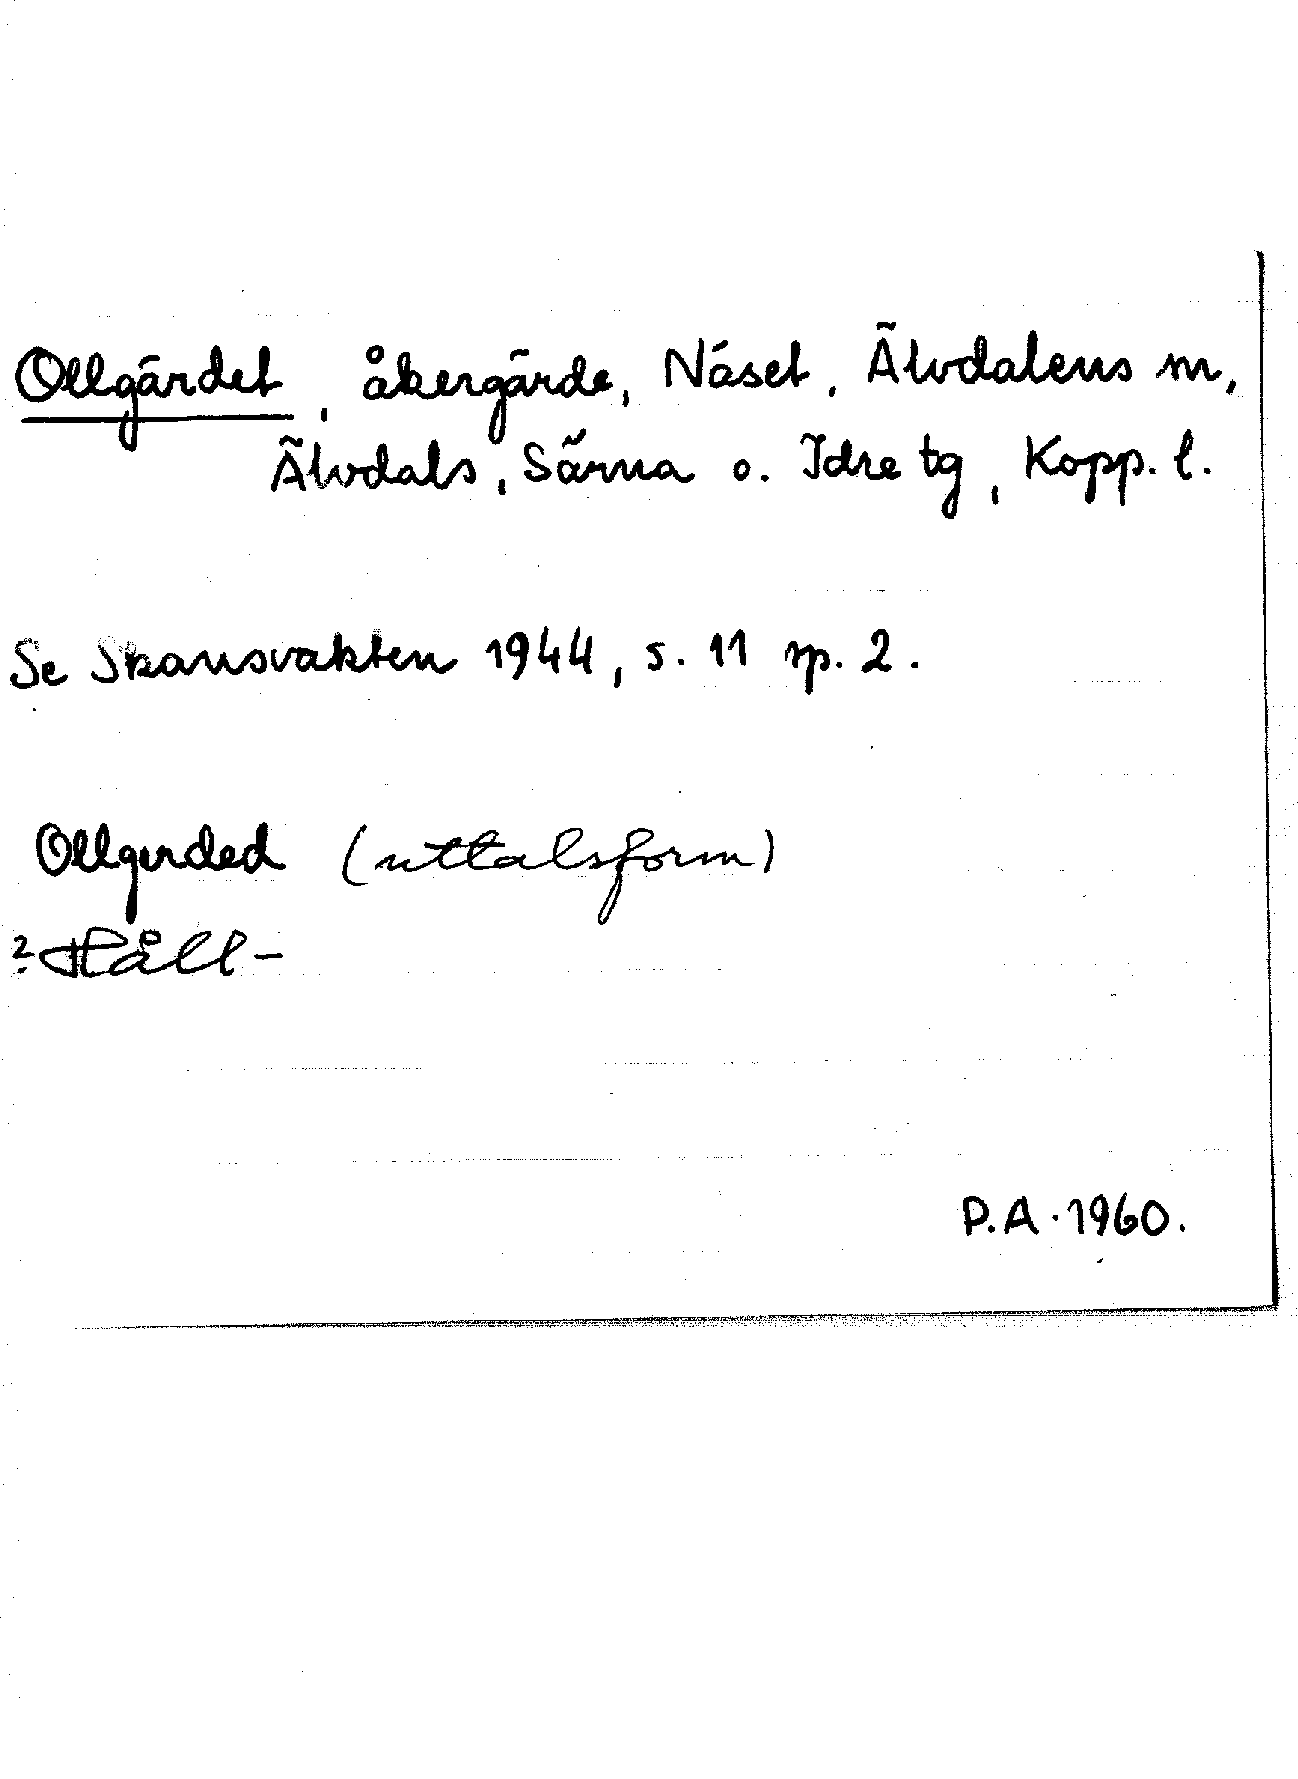 Ollgärdet, åkergärde, Näset, Älvdalens sn,
Älvdals, Särna o. Idre tg, Kopp. l.
Se Skansvakten 1944, s. 11 sp. 2.
Ollgerded (uttalsform)
? Håll-
P.A. 1960.